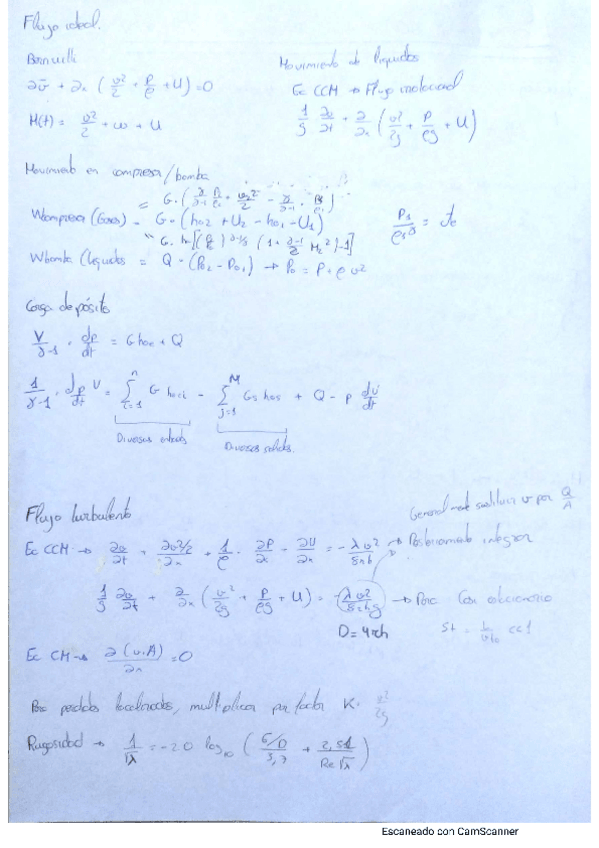 Flujo ideal.
Bernoulli
∂v̄ + ∂x ( v²/2 + P/ρ + U ) = 0
H(t) = v²/2 + ω + U
Movimiento de líquidos
Ec CCM → Flujo irrotacional
1/g ∂v/∂t + ∂/∂x ( v²/2g + P/ρg + U )
Movimiento en compresor/bomba
Wcompresor (Gases) = G·(h02 + U2 - h01 - U1)
Wbomba (líquidos = Q - (P02 - P01) → P0 = P + ρ v²
Carga depósito
V/γ-1 · dp/dt = G h0e + Q
1/γ-1 · dp/dt V = Σ i=1 n G h0ei - Σ j=1 M Gs h0s + Q - p dV/dt
Diversas entradas
Diversas salidas.
Flujo turbulento
Generalmente sustituir v por Q/A
Ec CCM → ∂v/∂t + ∂v²/2/∂x + 1/ρ · ∂P/∂x + ∂U/∂x = - λ v²/8rh → Posteriormente integrar
1/g ∂v/∂t + ∂/∂x ( v²/2g + P/ρg + U ) = - λ v²/8rhg → Para
D = 4rh
St = <<1
Ec CM → ∂(v.A)/∂x = 0
Para perdidas localizadas, multiplicar por factor K · v²/2g
Rugosidad → 1/√λ = -2.0 log10 ( ε/D/3,7 + 2,51/Re√λ )
Escaneado con CamScanner